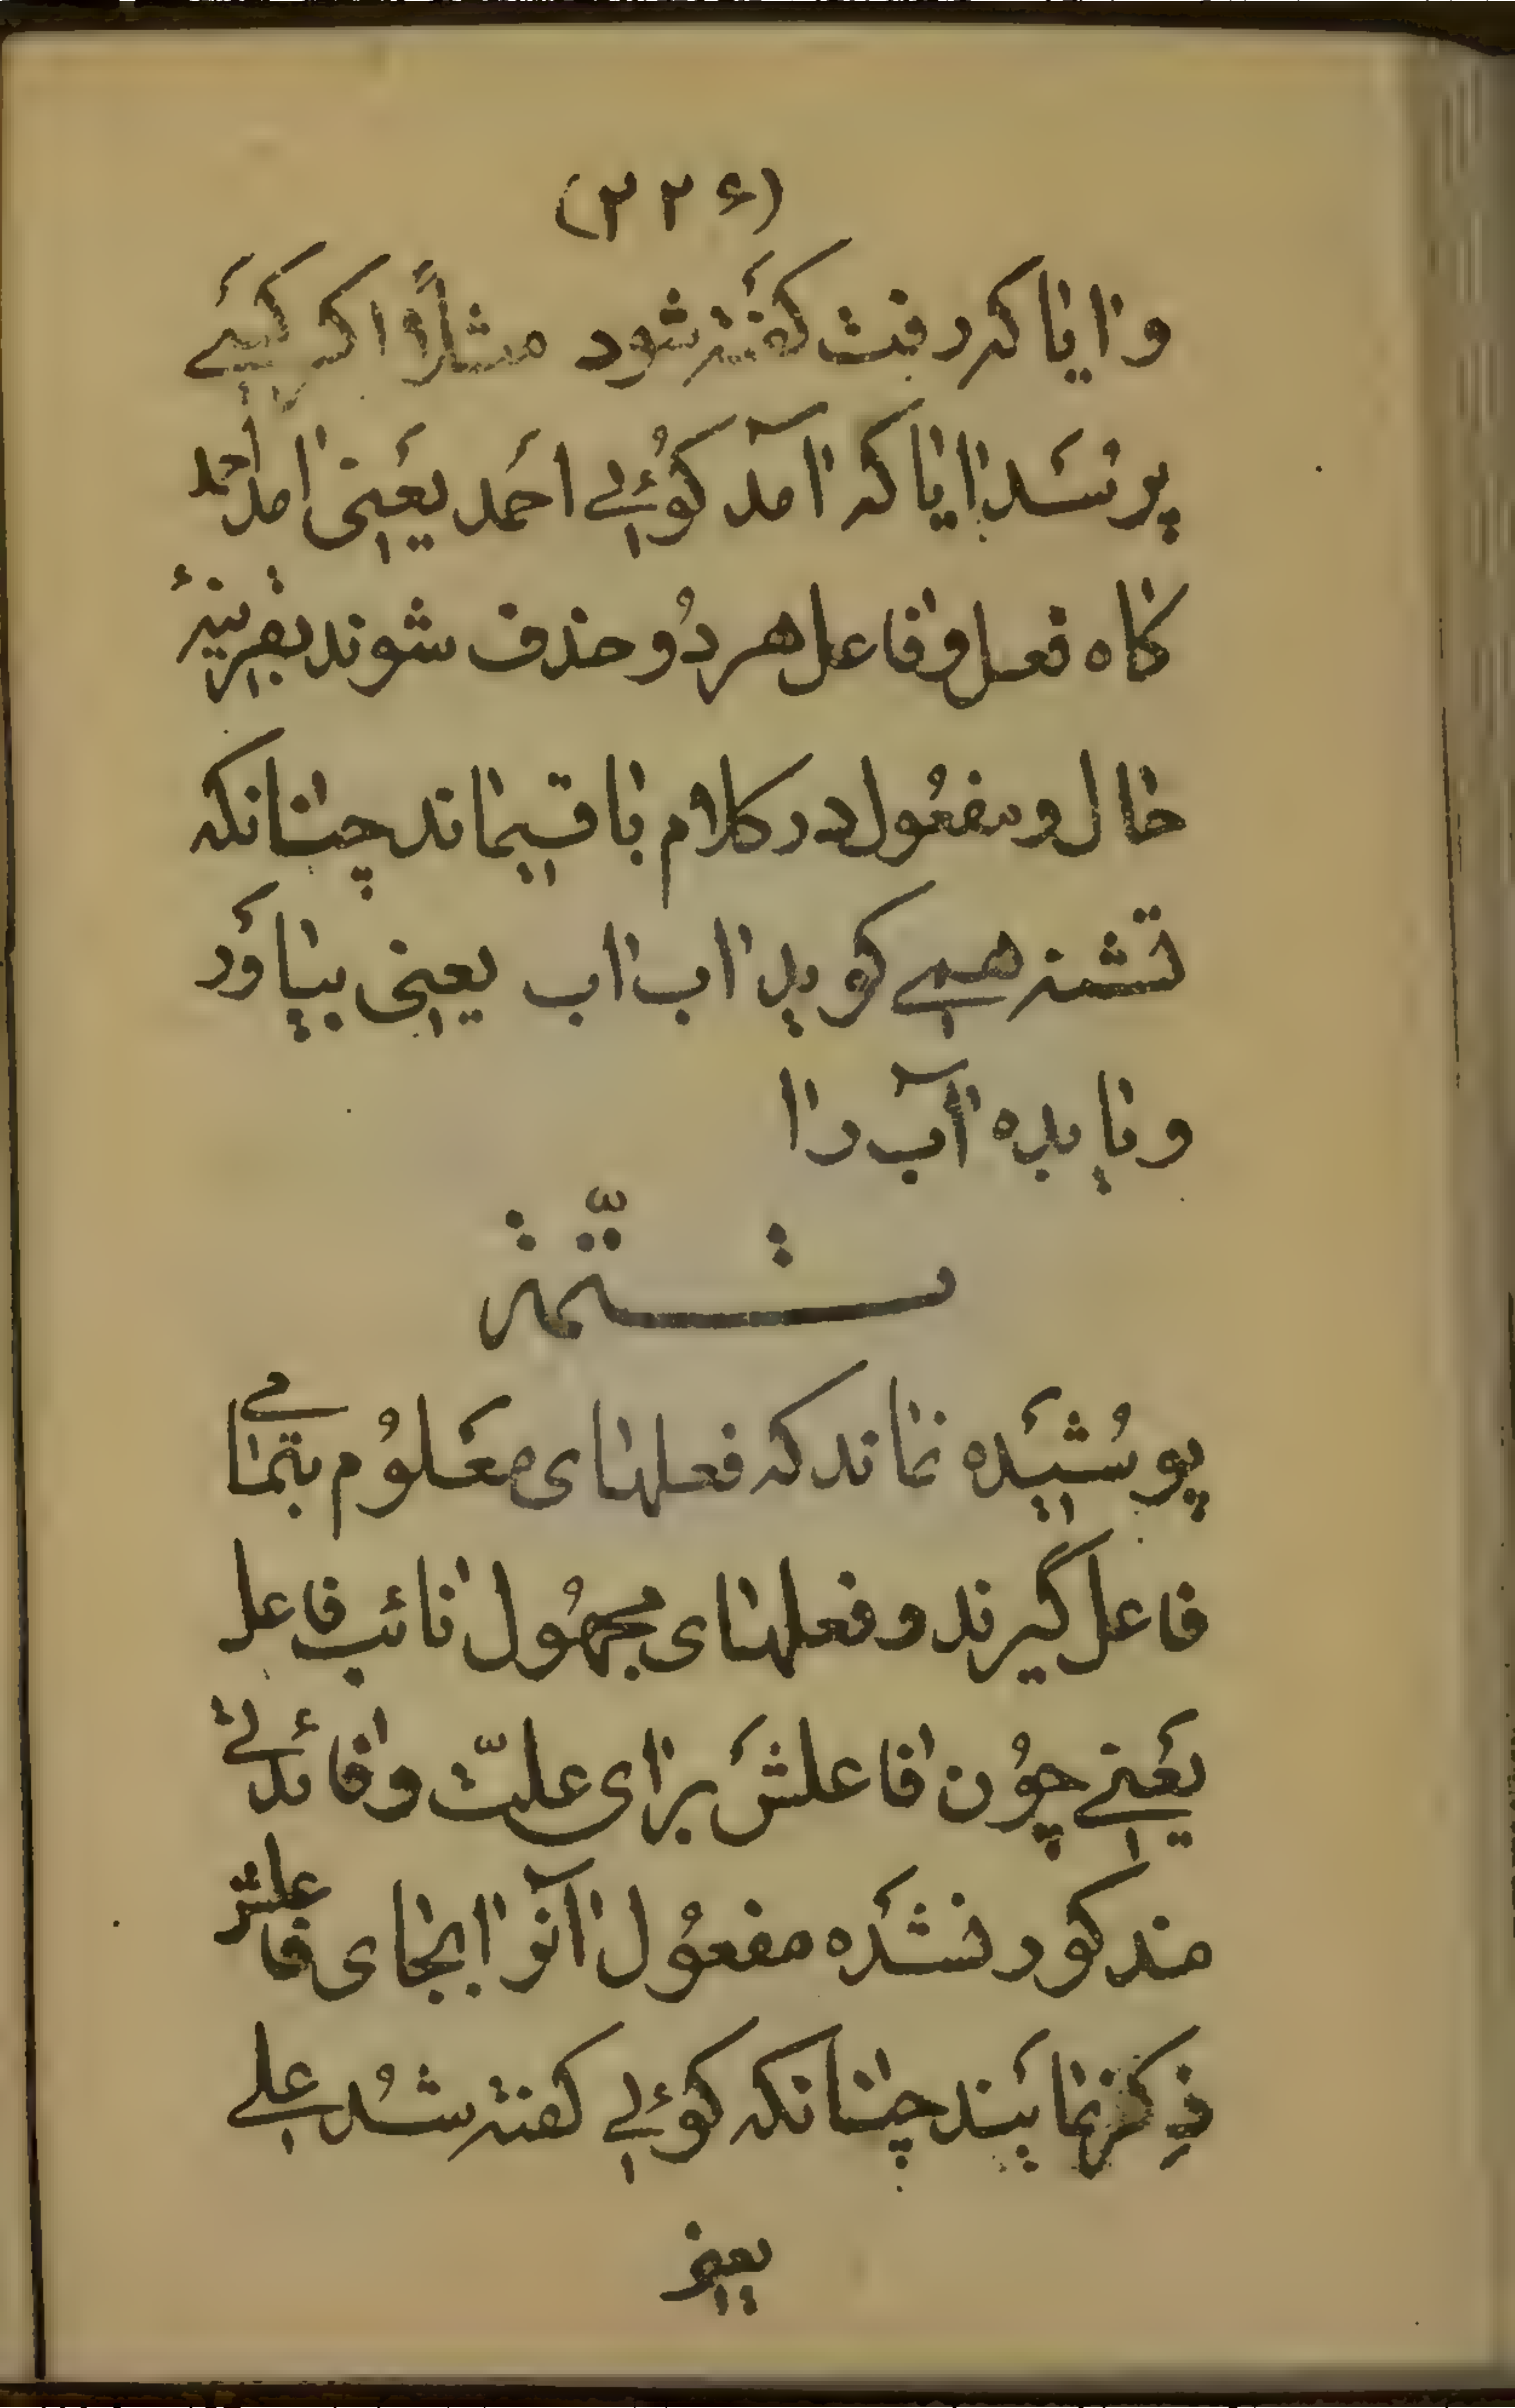 (۲۲۶)
و ایا که رفت کفته شود مثلاً اکر کسَے
پرسَد ایا که آمد کوُئے احَمد یعَنی امد احمد
کاه فعل و فاعل هر دُو حذف شوند بقرینهٔ
حال و مفعُول در کلام باقیماند چنانکه
تشنه همے کوید اب اب یعنی بیاوَر
و یا بده آب را
تتمّة
پوسُشیَده نماند که فعلهای معَلوُم بتمامے
فاعل گیرند و فعلهای مجهُول نائب فاعل
یعَنے چوُن فاعلشَ برای علّت و فائدئے
مذکور نشَده مفعوُل آنرا بجای فاعلش
ذِکر نمایَند چنانکه کوئے کفته شُد علے
یعنی